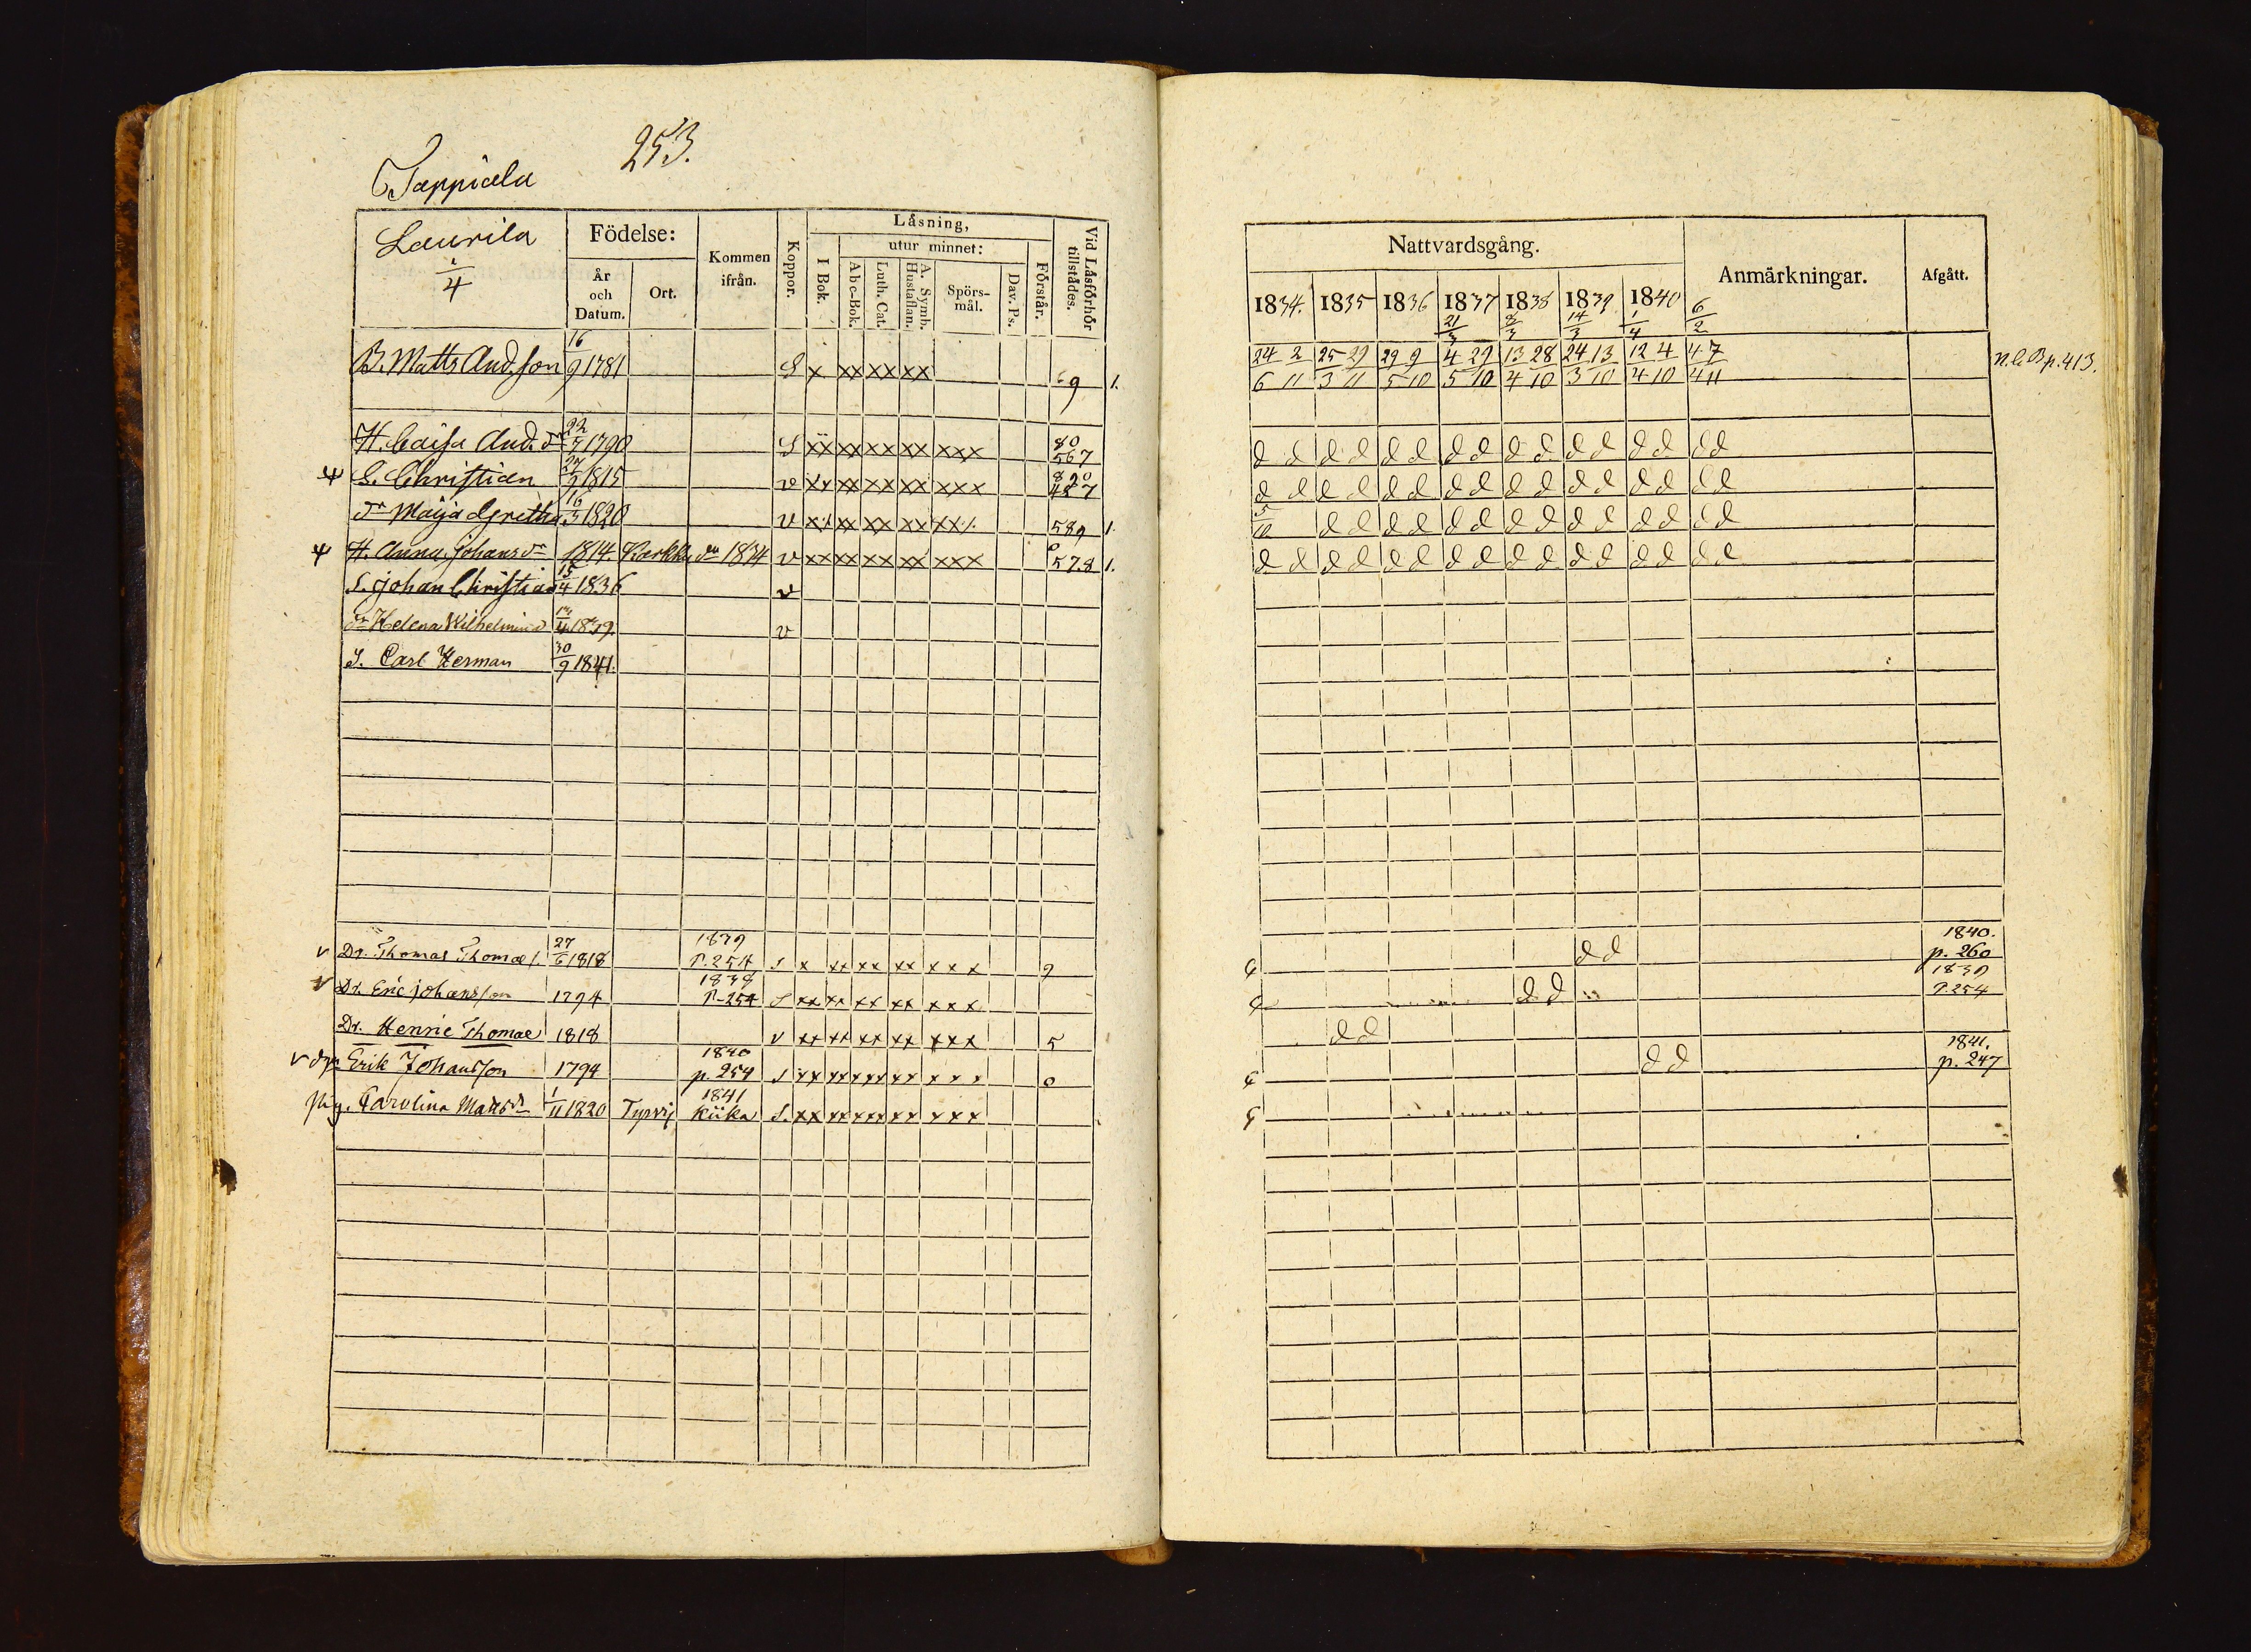 253.
Tappiala
Laurila
1/4
Födelse:
År och Datum.
Ort.
Kommen ifrån.
Koppor.
Läsning,
utur minnet:
I Bok.
Abc-Bok.
Luth. Cat.
A. Symb. Hustaflan.
Spörsmål.
Dav. Ps.
Förstår.
Vid Läsförhör tillstådes.
B. Matts And.son 16/9 1781 S x xx xx xx 69 1.
H. Caisa And.dr 22/7 1790 S xx xx xx xx xxx 80 567
S. Christian 27/7 1815 v xx xx xx xx xxx
dr Maija Gretha 16/3 1820 v xx xx xx xx xx 589 1.
H. Anna Johansdr 1814. Karkku 1834 v xx xx xx xx xxx 0 578 1.
S. Johan Christian 15/4 1836 v
dr Helena Wilhelmina 1839. v
S. Carl Herman 30/9 1841.
v Dr. Thomas Thomæ 27/6 1818 1839 P. 254 s x xx xx xx xxx 9
v Dr. Eric Johansson 1794 1838 P-254 S xx xx xx xx xxx
Dr. Henric Thomae 1818 v xx xx xx xx xxx 5
v Erik Johansson 1794 1840 p. 254 s xx xx xx xx xxx 0
pig. Carolina Matsdr 1/11 1820 Tyrvis 1841 Kiika S. xx xx xx xx xxx
Nattvardsgång.
Anmärkningar.
Afgått.
1834. 1835 1836 1837 1838 1839 1840
21/3 8/3 14/3 1/4 6/2
24/6 2/11 25/3 29/11 29/5 9/10 4/5 29/10 13/4 28/10 24/3 13/10 12/4 4/10 4/4 7/11 n.C.B p. 413.
d d d d d d d d d d d d d d d d
d d d d d d d d d d d d d d d d
5/10 d d d d d d d d d d d d d d
d d d d d d d d d d d d d d d d
d d 1840. p. 260
d d 1839 P. 254
d d
d d 1841. p. 247